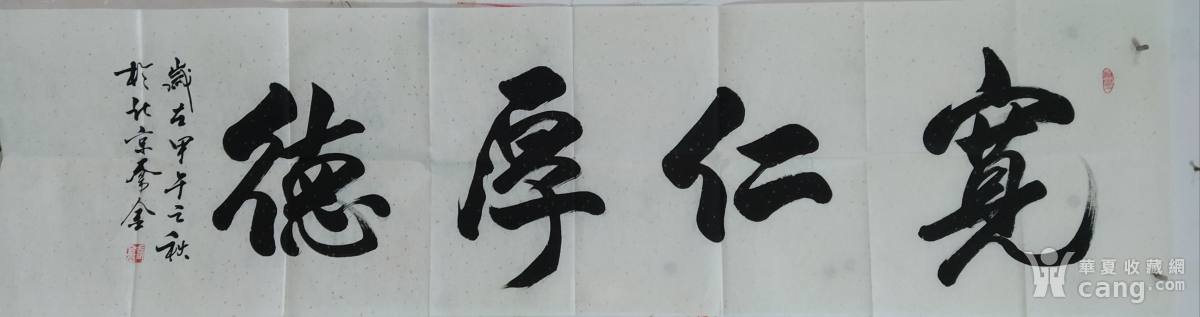 寬仁厚德
歲在甲午之秋
於北京
華夏收藏網
cang.com